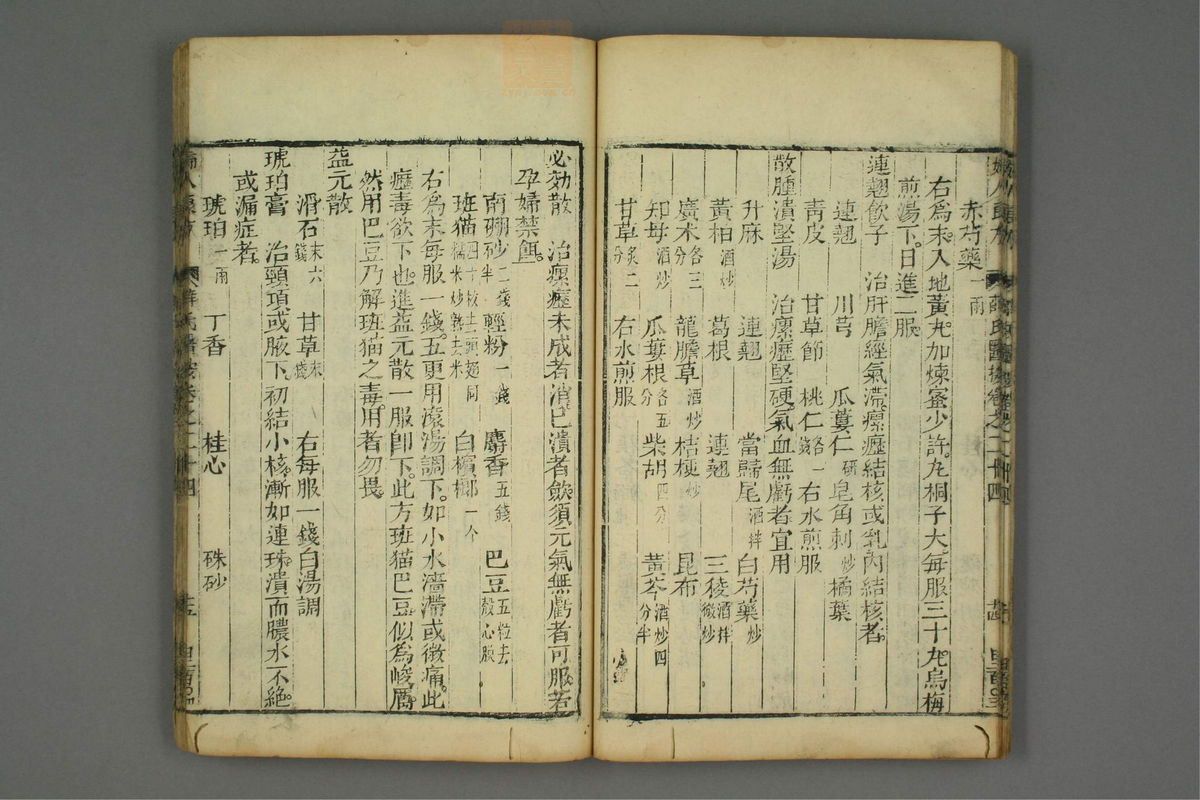 赤芍藥一兩
右為末入地黃丸加煉蜜少許丸桐子大每服三十丸烏梅
煎湯下日進二服
連翹飲子 治肝膽經氣滯瘰癧結核或乳內結核者
連翹 川芎 瓜蔞仁研 皂角刺炒 橘葉
青皮 甘草節 桃仁各一錢 右水煎服
散腫潰堅湯 治瘰癧堅硬氣血無虧者宜用
升麻 連翹 當歸尾酒拌 白芍藥炒
黃柏酒炒 葛根 連翹 三稜酒拌微炒
廣朮各三分 龍膽草酒炒 桔梗炒 昆布
知母酒炒 瓜蔞根各五分 柴胡四分 黃芩酒炒四分半
甘草炙二分 右水煎服
必効散 治瘰癧未成者消已潰者斂須元氣無虧者可服若
孕婦禁餌
南硼砂二錢半 輕粉一錢 麝香五錢 巴豆五粒去殼心膜
班猫四十枚去頭翅同糯米炒熟去米 白檳榔一个
右為末每服一錢五更用滾湯調下如小水濇滯或微痛此
癧毒欲下也進益元散一服卽下此方班猫巴豆似為峻厲
然用巴豆乃解班猫之毒用者勿畏
益元散
滑石末六錢 甘草末錢 右每服一錢白湯調
琥珀膏 治頸項或腋下初結小核漸如連珠潰而膿水不絕
或漏症者
琥珀一兩 丁香 桂心 硃砂